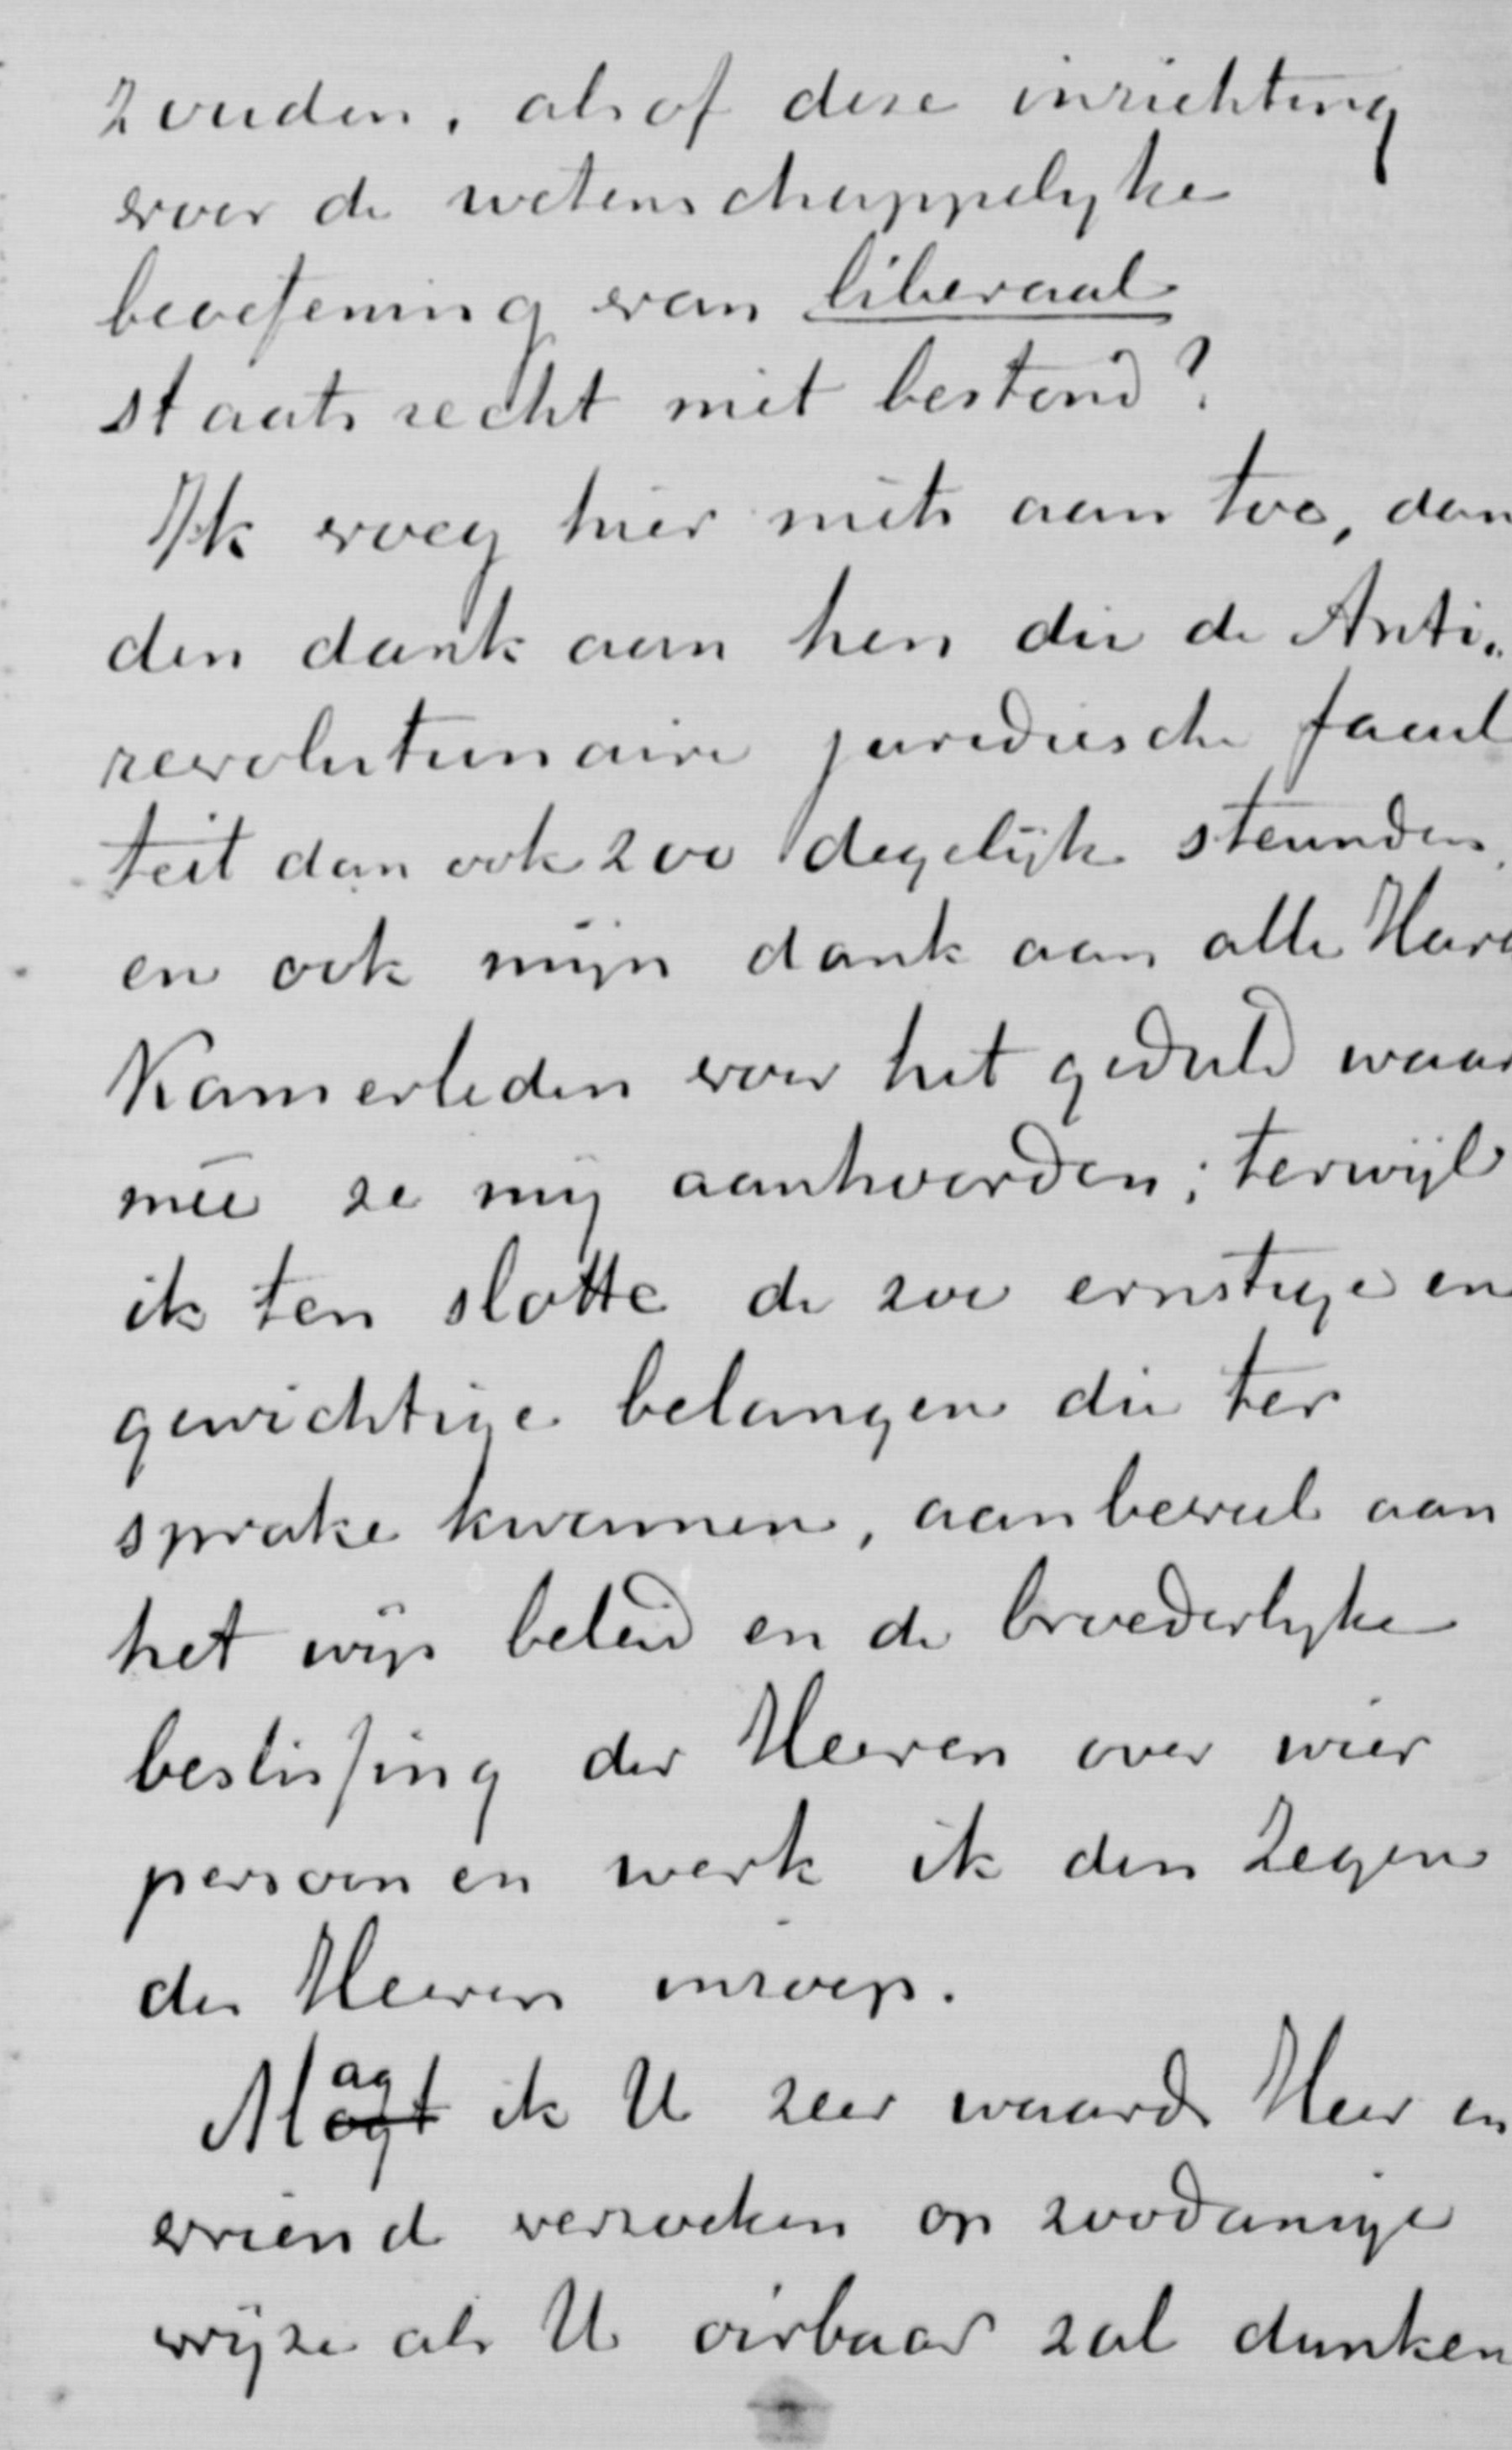 zouden, alsof deze inrichting
voor de wetenschappelyke
beoefening van liberaal
staatsrecht niet bestond?
Ik voeg hier niets aan toe, dan
den dank aan hen die de Anti-
revolutionaire juridiesche facul
teit dan ook zoo degelijk steunden,
en ook mijn dank aan alle Heere
Kamerleden voor het geduld waar
meê ze mij aanhoorden; terwijl
ik ten slotte de zoo ernstige en
gewichtige belangen die ter
sprake kwamen, aanbeveel aan
het wijs beleid en de broederlyke
beslissing der Heeren over wier
persoon en werk ik den Zegen
des Heeren inroep.
Magt ik U zeer waarde Heer en
vriend verzoeken op zoodanige
wijze als U oirbaar zal dunken